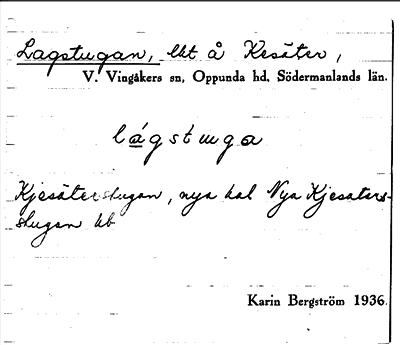 Lagstugan, lht å Kesäter,
V. Vingåkers sn, Oppunda hd, Södermanlands län.
lágstuga
Kjesäterstugan, nya kal Nya Kjesäters-
stugan hb
Karin Bergström 1936.